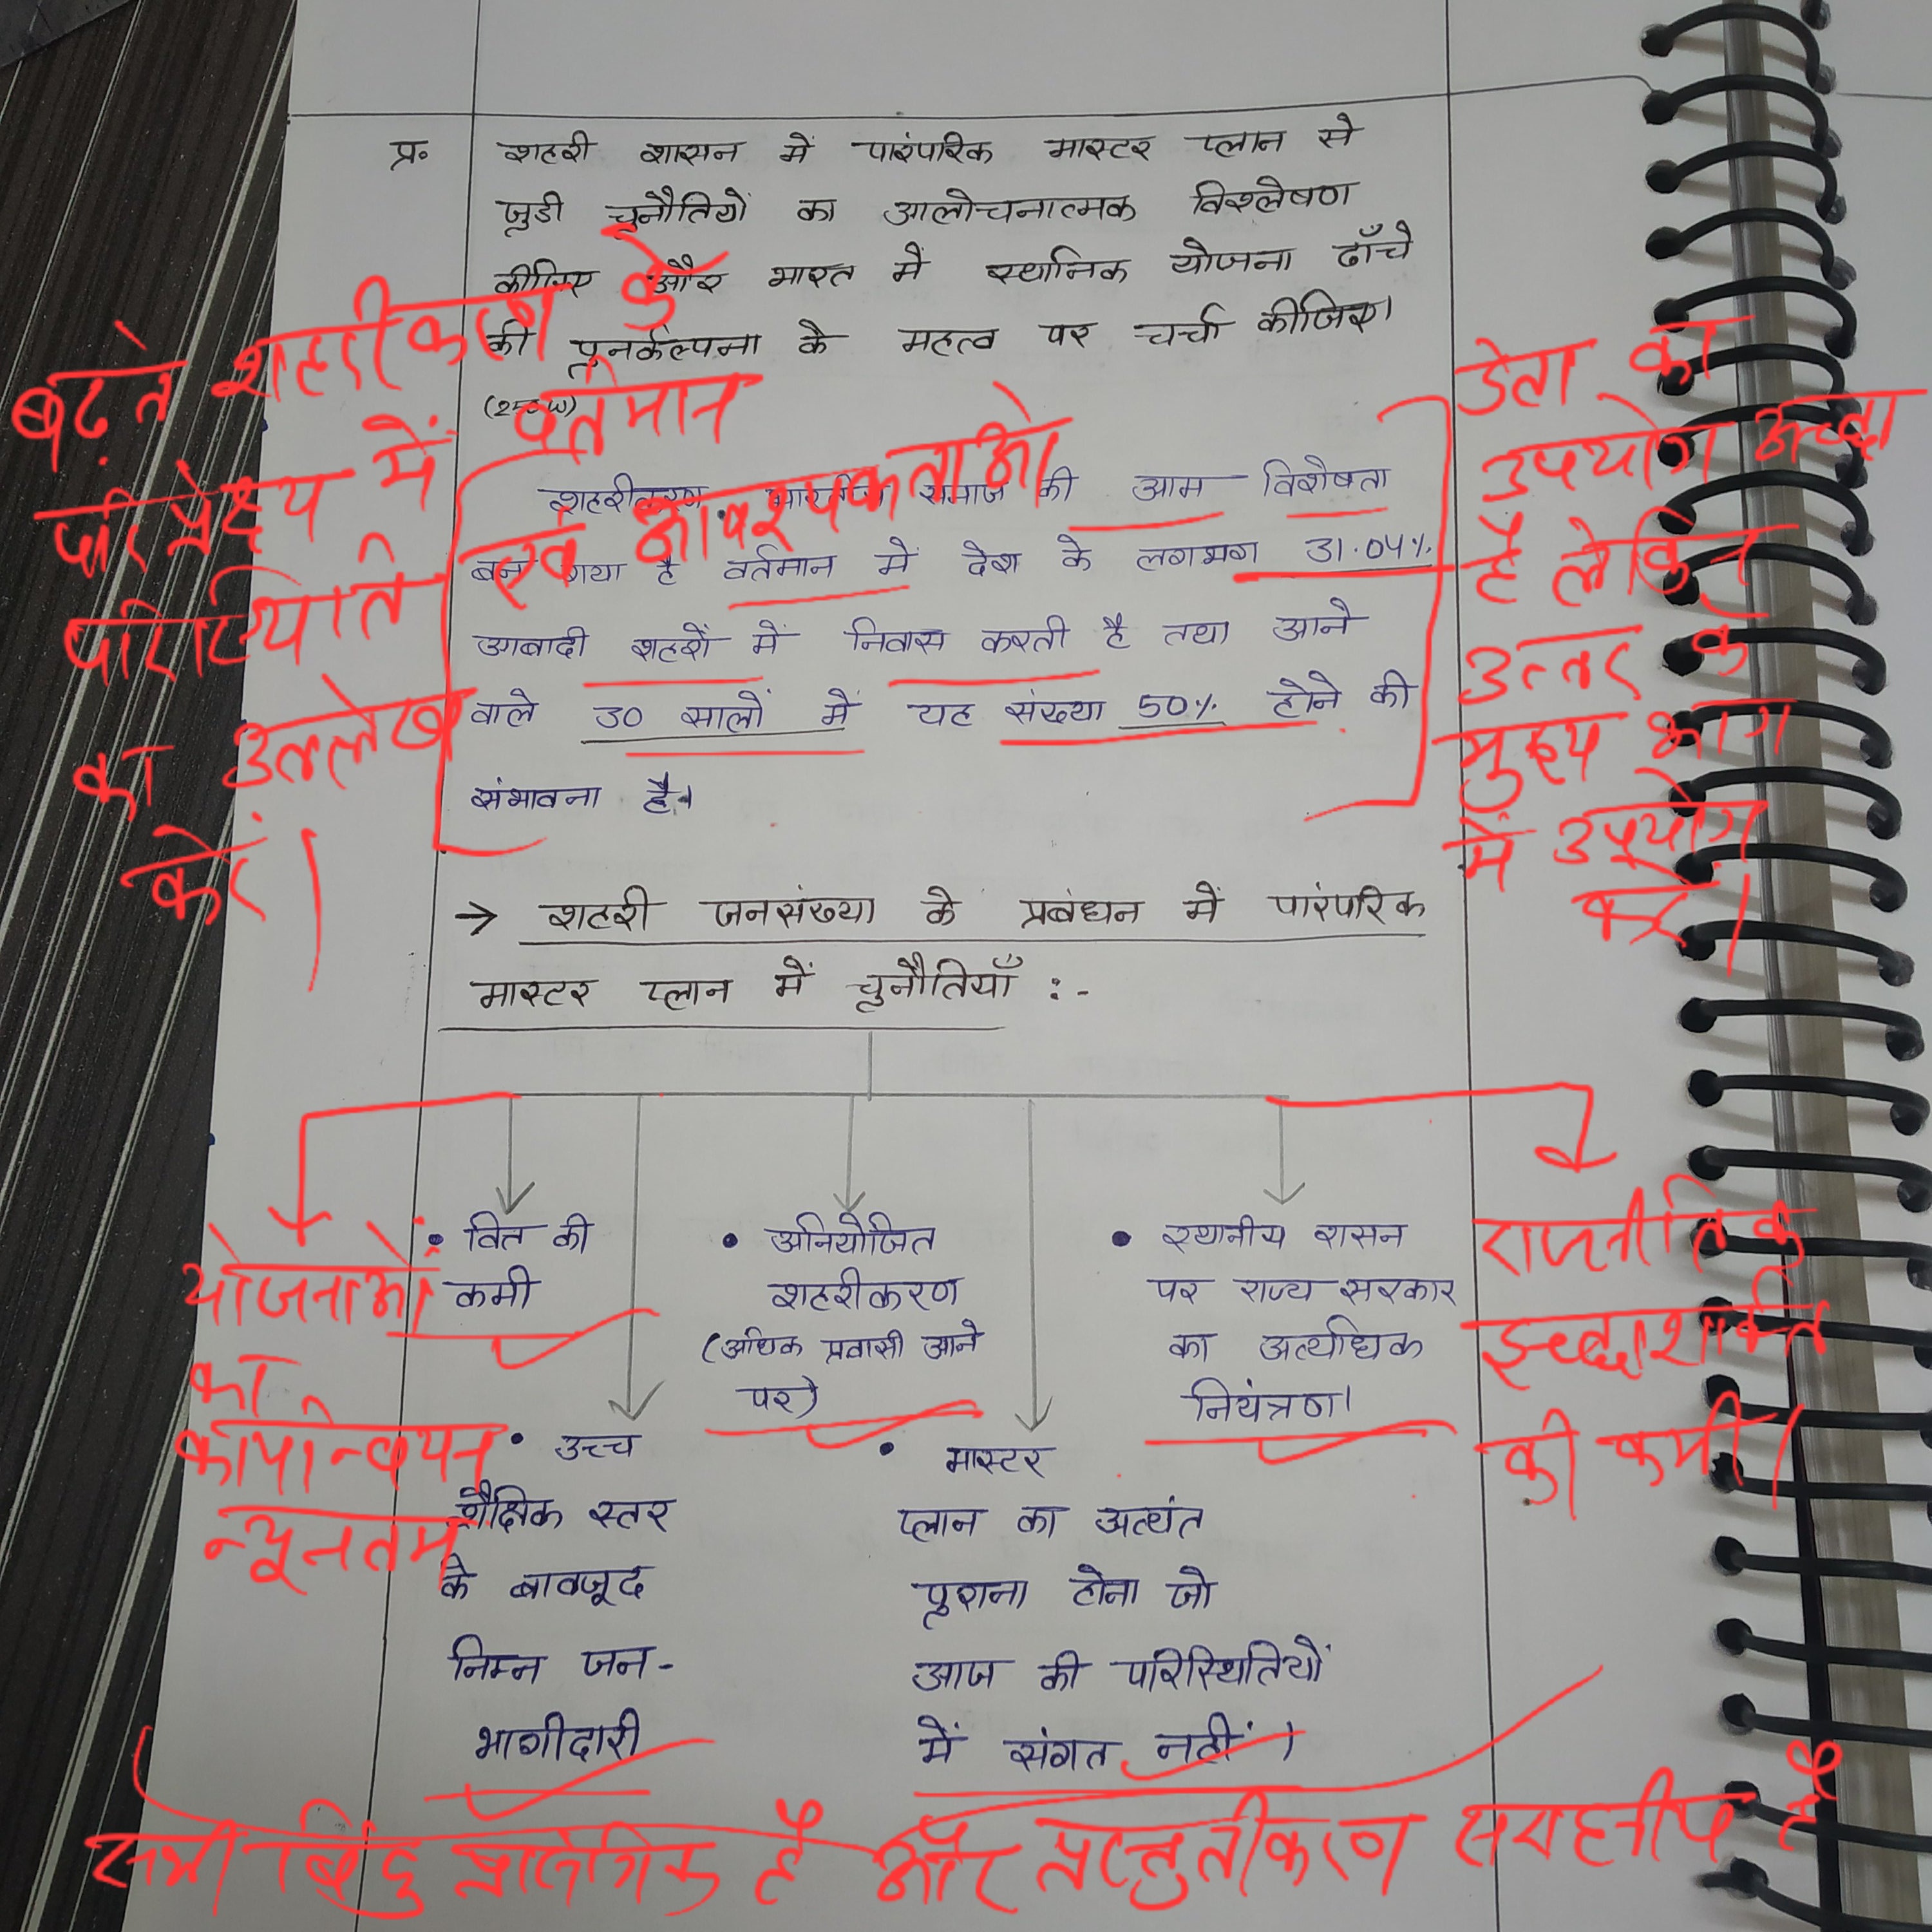 प्र. शहरी शासन में पारंपरिक मास्टर प्लान से
जुडी चुनौतियों का आलोचनात्मक विश्लेषण
कीजिए और भारत में स्थानिक योजना ढाँचे
की पुनर्कल्पना के महत्व पर चर्चा कीजिए।
शहरीकरण भारतीय समाज की आम विशेषता
बन गया है वर्तमान में देश के लगभग 31.04%
आबादी शहरों में निवास करती है तथा आने
वाले 30 सालों में यह संख्या 50% होने की
संभावना है।
बढ़ते शहरीकरण के
परिप्रेक्ष्य में वर्तमान
परिस्थिति एवं आवश्यकताओं
का उल्लेख
करें।
डेटा का
उपयोग अच्छा
है लेकिन
उत्तर के
मुख्य भाग
में उपयोग
करें।
→ शहरी जनसंख्या के प्रबंधन में पारंपरिक
मास्टर प्लान में चुनौतियाँ :-
योजनाओं
का
कार्यान्वयन
न्यूनतम
• वित की
कमी
• उच्च
शैक्षिक स्तर
के बावजूद
निम्न जन-
भागीदारी
• अनियोजित
शहरीकरण
(अधिक प्रवासी आने
पर)
• मास्टर
प्लान का अत्यंत
पुराना होना जो
आज की परिस्थितियों
में संगत नहीं।
• स्थानीय शासन
पर राज्य सरकार
का अत्यधिक
नियंत्रण।
राजनीतिक
इच्छाशक्ति
की कमी।
सभी बिंदु प्रासंगिक है और प्रस्तुतीकरण सराहनीय है